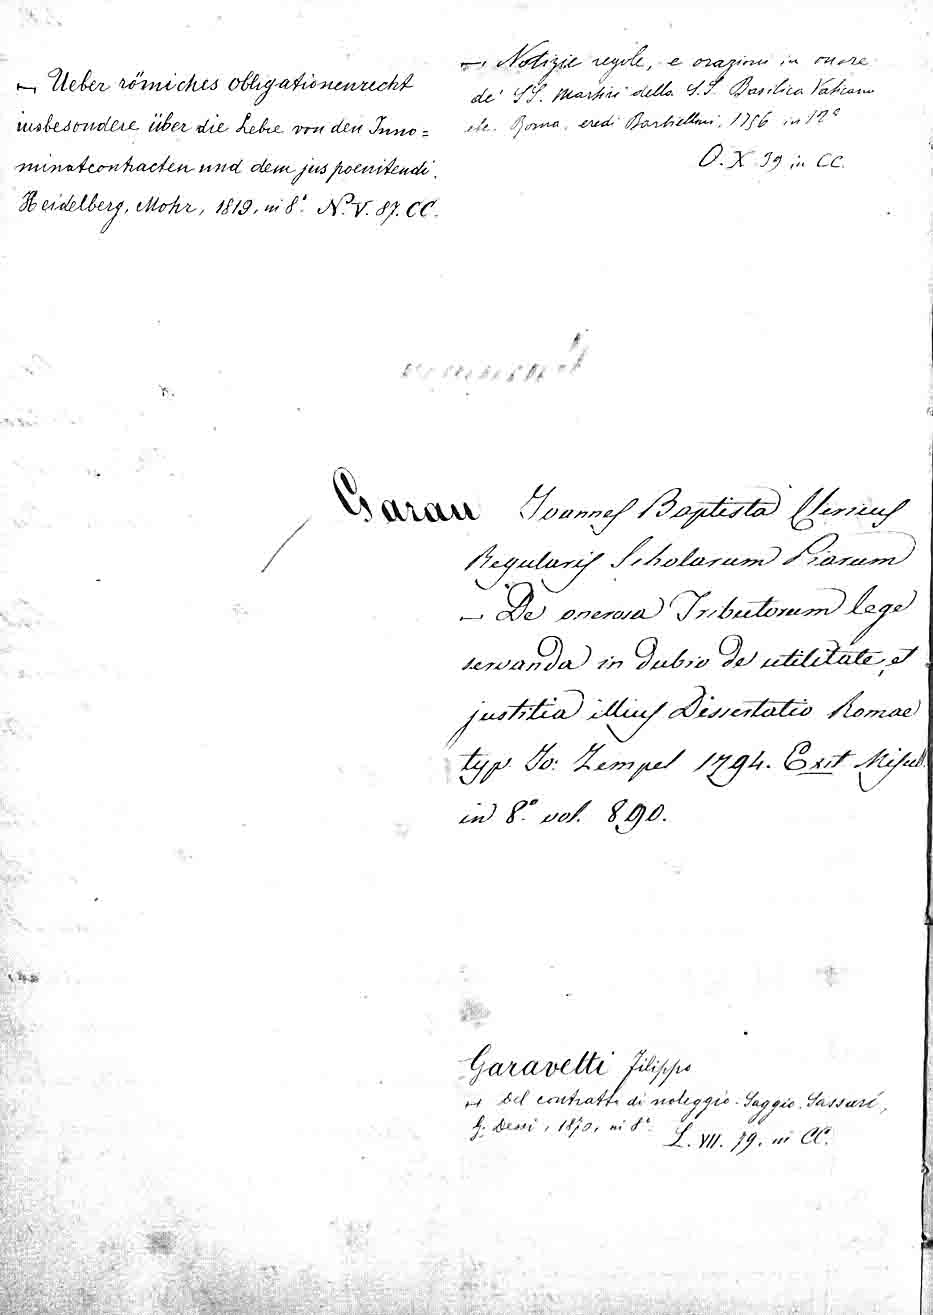 — Ueber römiches obligationenrecht
insbesondere über die Lebre von den Inno=
minatcontracten und dem jus poenitendi.
Heidelberg, Mohr, 1819, in 8.° N. V. 87. CC.
— Notizie regole, e orazioni in onore
de' SS. Martiri della S.S. Basilica Vaticana
etc. Roma. eredi Barbiellini, 1756 in 12°
O. X 39 in CC.
Garau Joannes Baptista Clericus
Regularis Scholarum Piarum
— De onerosa Tributorum lege
servanda in dubio de utilitate, et
justitia illius Dissertatio Romae
typ Jo: Zempel 1794. Exit Miscell.
in 8.° vol. 890.
Garavetti Filippo
— Del contratto di noleggio. Saggio. Sassari,
G. Dessi, 1870, in 8°.
L. VII. 79. in CC.